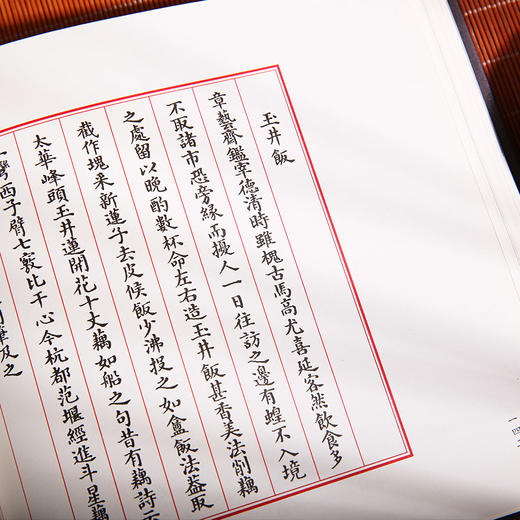 玉井飯
章藝齋鑑宰德清時雖槐古馬高尤喜延客然飲食多
不取諸市恐旁緣而擾人一日往訪之邊有蝗不入境
之處留以晚酌數杯命左右造玉井飯甚香美法削藕
截作塊采新蓮子去皮候飯少沸投之如盦飯法益取
太華峰頭玉井蓮開花十丈藕如船之句昔有藕詩云
一彎西子臂七竅比干心今杭都范堰經進斗星藕
筆及之
四